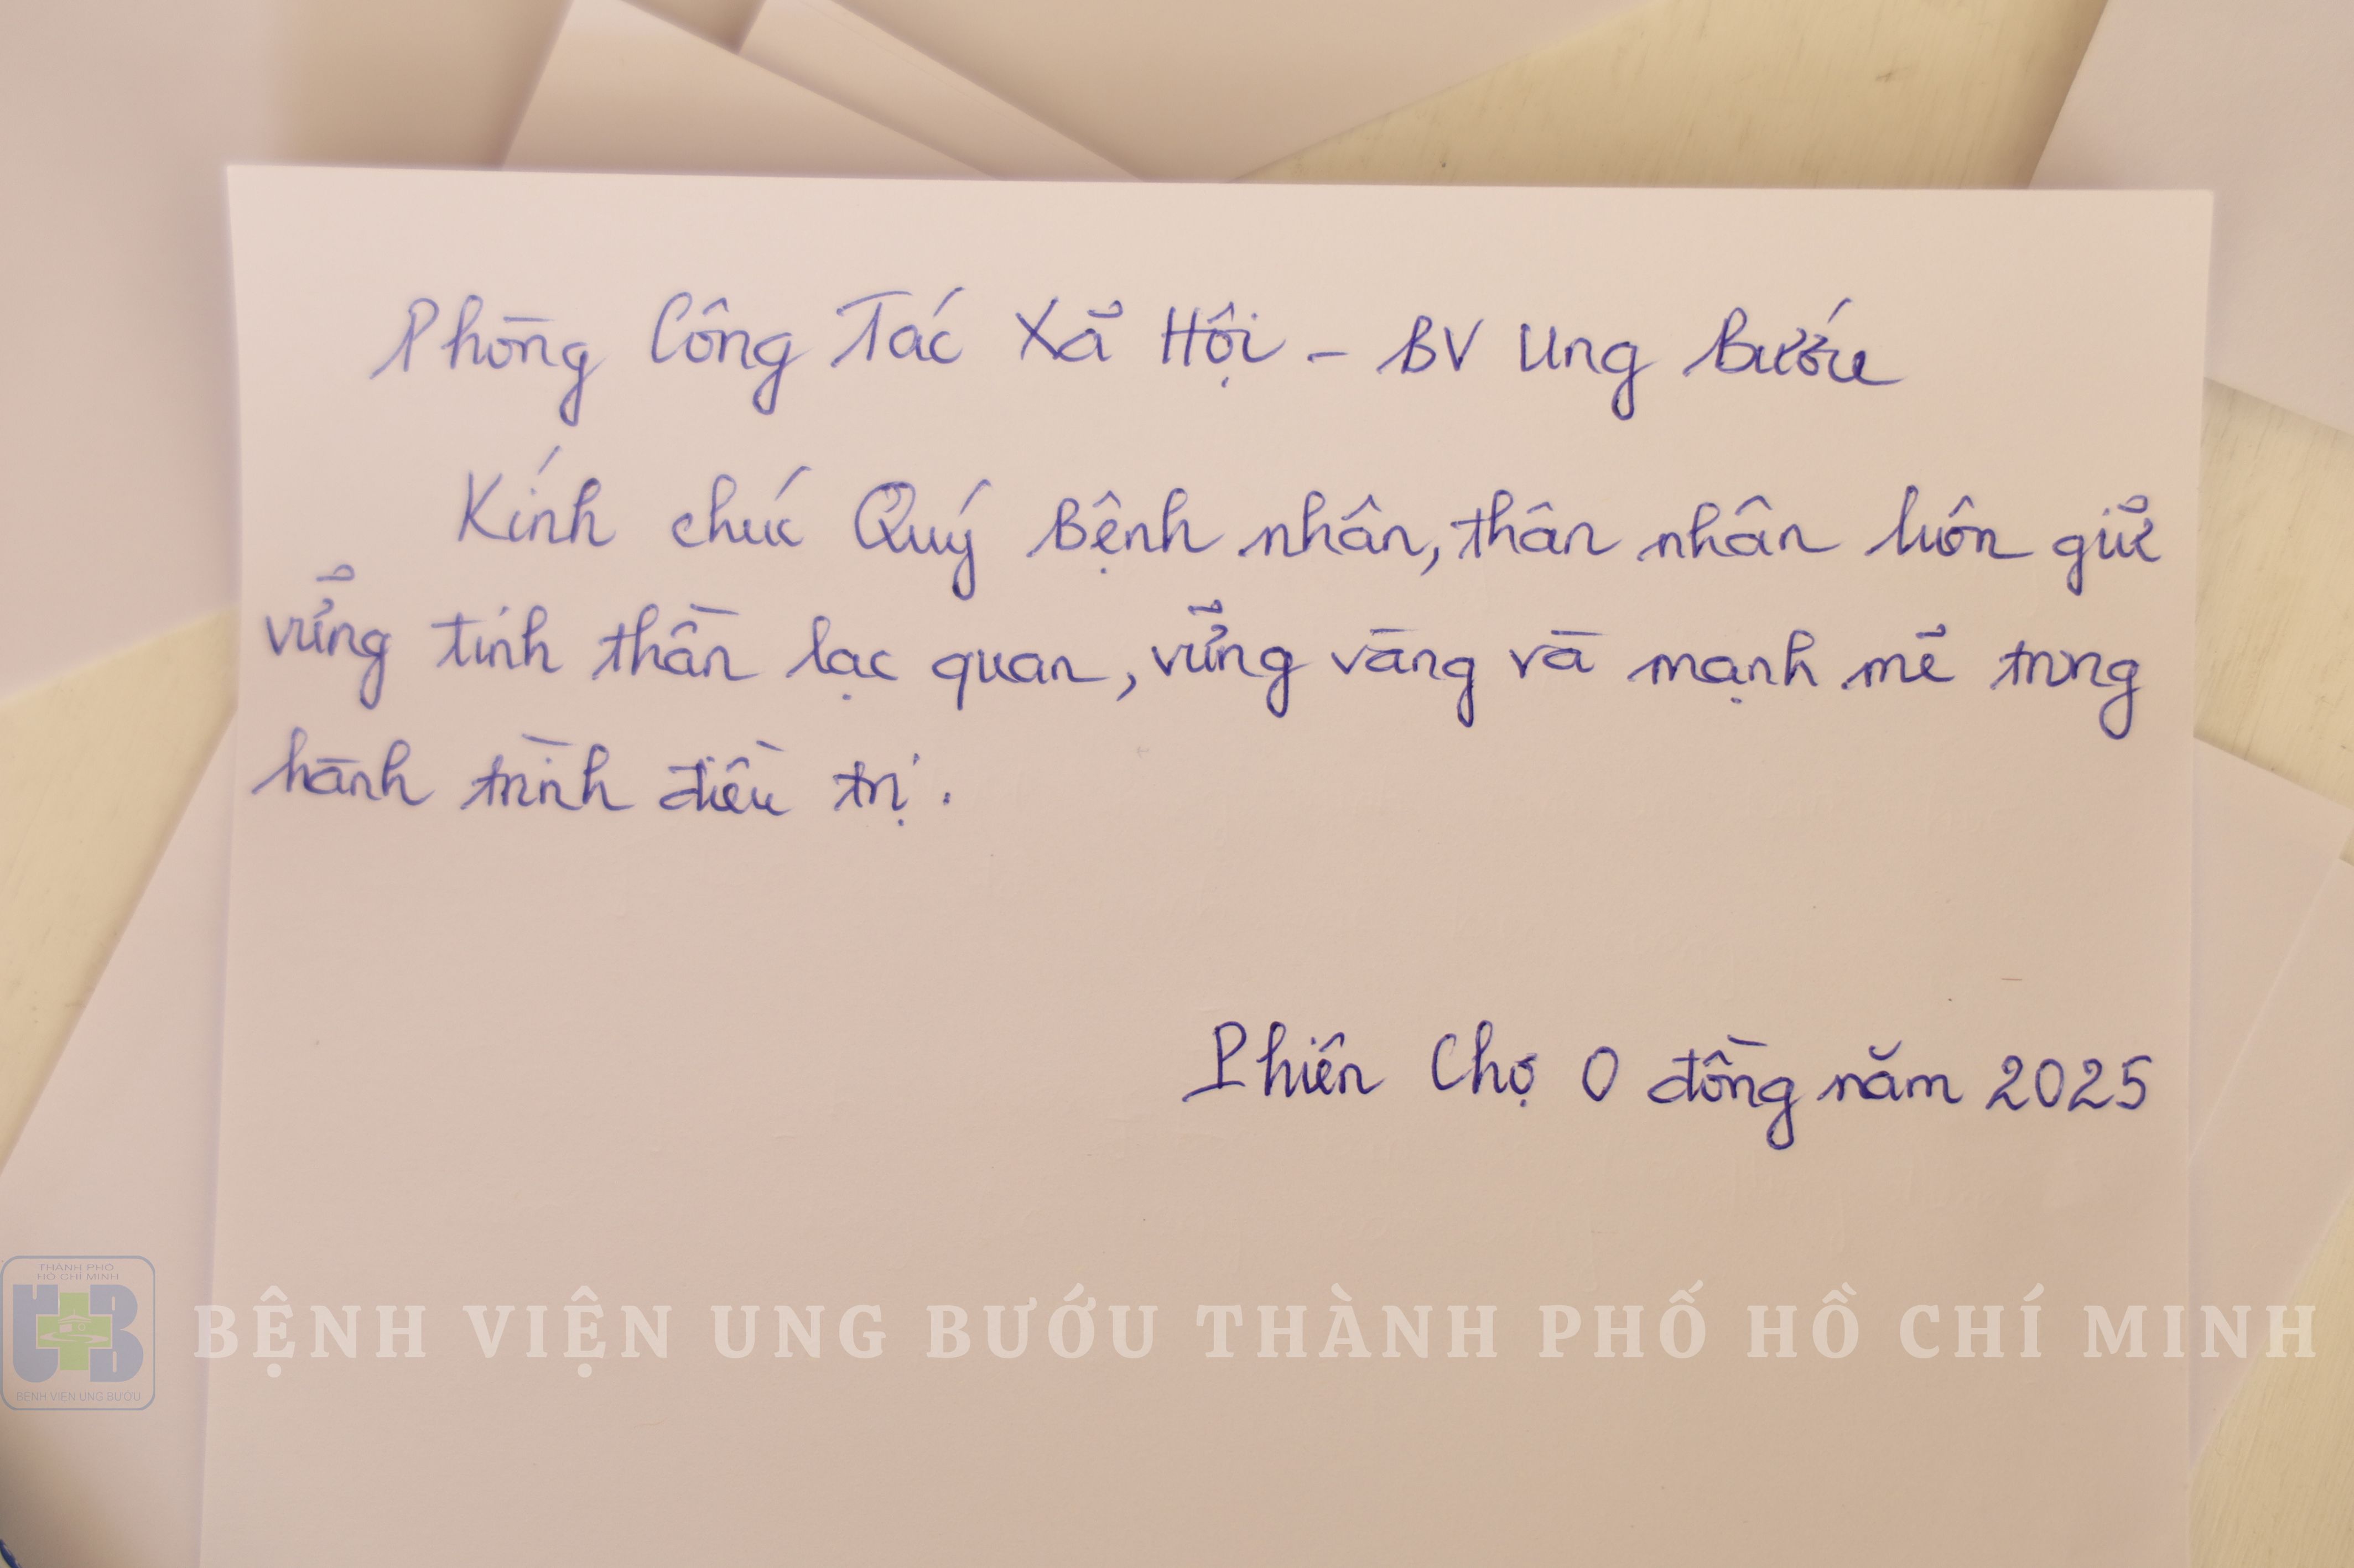 Phòng Công Tác Xã Hội - BV Ung Bướu
Kính chúc Quý Bệnh nhân, thân nhân luôn giữ
vững tinh thần lạc quan, vững vàng và mạnh mẽ trong
hành trình điều trị.
Phiên Chợ 0 đồng năm 2025
THÀNH PHỐ
HỒ CHÍ MINH
UB
BỆNH VIỆN UNG BƯỚU
BỆNH VIỆN UNG BƯỚU THÀNH PHỐ HỒ CHÍ MINH